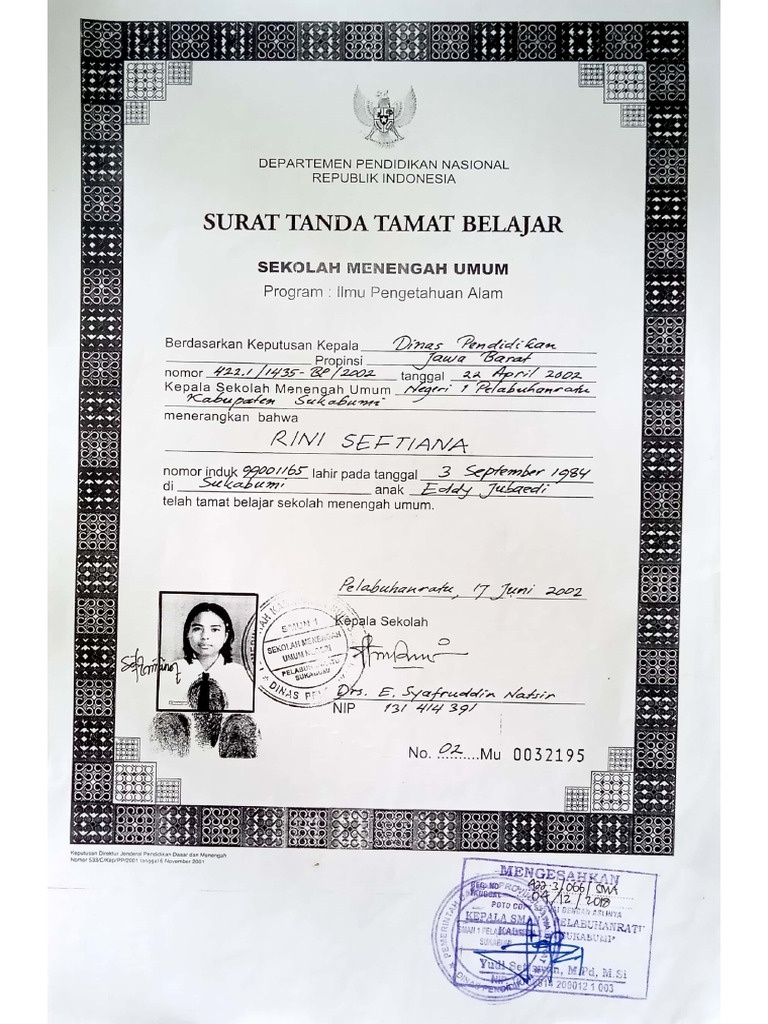 DEPARTEMEN PENDIDIKAN NASIONAL
REPUBLIK INDONESIA
SURAT TANDA TAMAT BELAJAR
SEKOLAH MENENGAH UMUM
Program : Ilmu Pengetahuan Alam
Berdasarkan Keputusan Kepala Dinas Pendidikan
Propinsi Jawa Barat
nomor 422.1/1435-BP/2002 tanggal 22 April 2002
Kepala Sekolah Menengah Umum Negeri 1 Pelabuhanratu
Kabupaten Sukabumi
menerangkan bahwa
RINI SEFTIANA
nomor induk 99001165 lahir pada tanggal 3 September 1984
di Sukabumi anak Eddy Jubaedi
telah tamat belajar sekolah menengah umum.
Pelabuhanratu, 17 Juni 2002
Kepala Sekolah
SMUN 1
SEKOLAH MENENGAH
UMUM NEGERI
PELABUHANRATU
SUKABUMI
DINAS
Drs. E. Syafruddin Natsir
NIP 131 414 391
No. 02 Mu 0032195
Keputusan Direktur Jenderal Pendidikan Dasar dan Menengah
Nomor 533/C/Kep/PP/2001 tanggal 6 November 2001
MENGESAHKAN
422.3/066/SMA
04/12/2018
DENGAN ASLINYA
KEPALA SMA PELABUHANRATU
KAB SUKABUMI
SMAN 1
SUKABUMI
DINAS PENDIDIKAN
Yudi M.Pd, M.Si
NIP